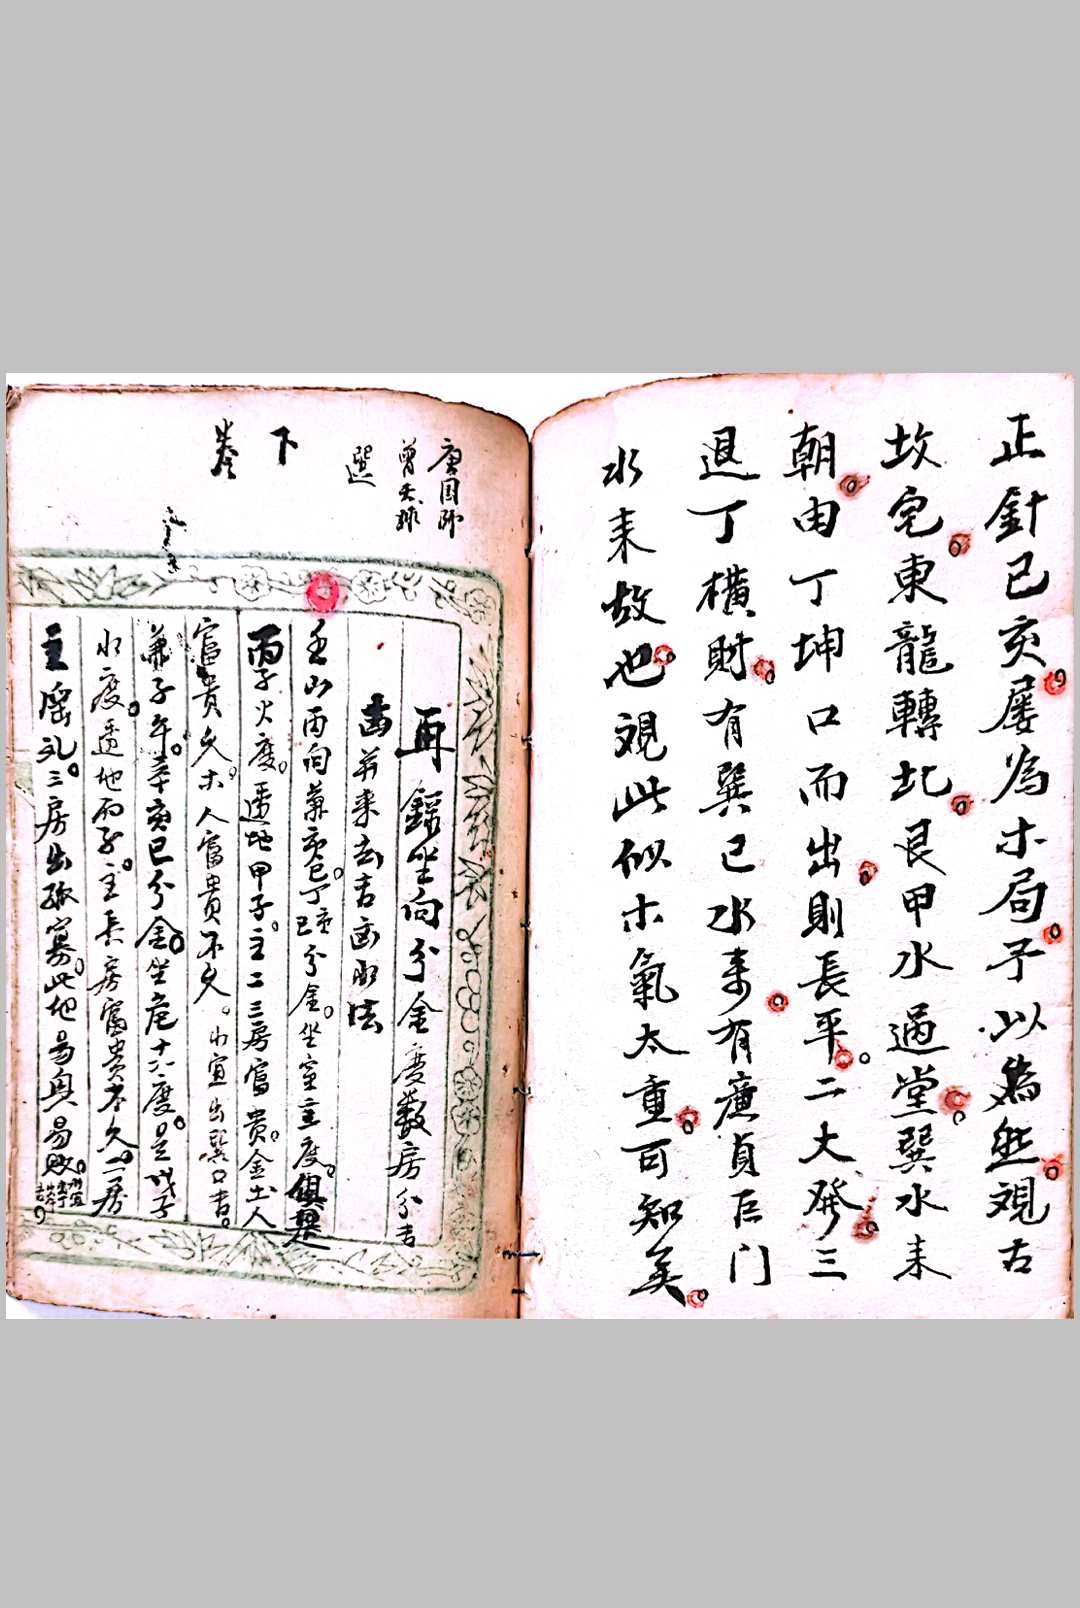 正針已亥屡為木局予以為然观古
坟宅東龍轉北艮甲水過堂巽水来
朝由丁坤口而出則長平二大發三
退丁橫財有巽已水来有廉貞巨门
水来故也观此似木氣太重可知矣
唐国师
曾天球
選
下
卷
再錄坐向分金度数房分吉
凶并来去吉凶水法
壬山丙向兼亥巳丁亥丁巳分金坐室主度俱
丙子火度透地甲子主二三房富贵金土人
富貴久木人富貴不久水宜出巽口吉
兼子午辛亥巳分金坐危十六度是戊子
水度透地丙子主長房富貴不久二房
主淫乱三房出孤寡此地易興易敗